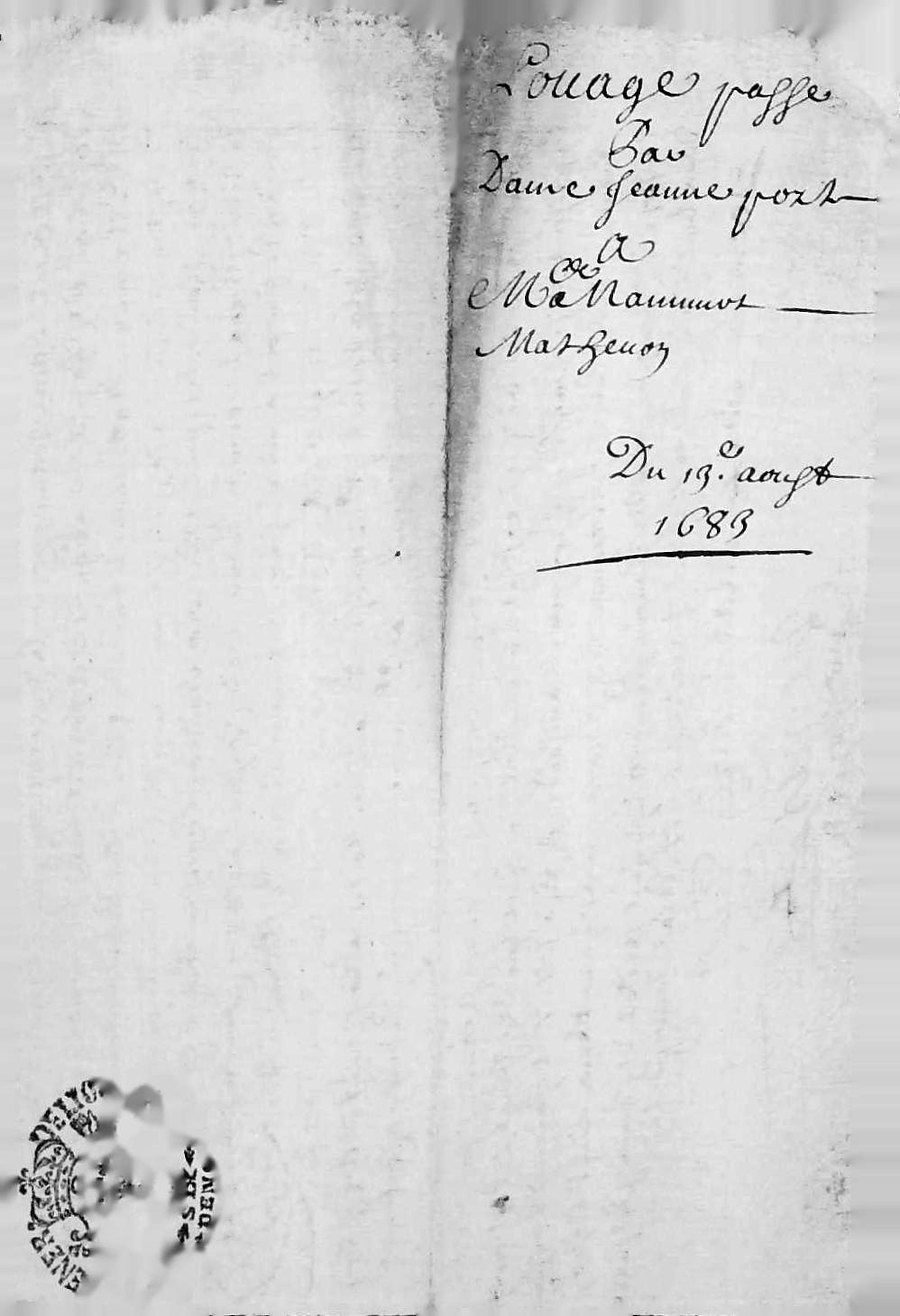 Louage passe
Par
Dame Jeanne port
A
Mathenon
Du 13.e aoust
1683
SIX
DEN